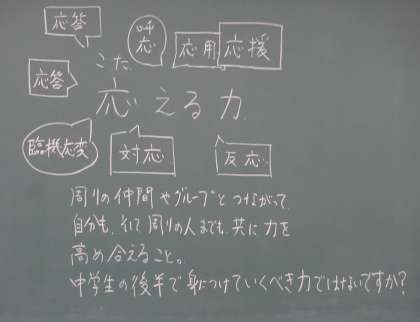 応答
呼応
応用
応援
こた
応答
応える力
臨機応変
対応
反応
周りの仲間やグループとつながって、
自分も、そして周りの人までも、共に力を
高め合えること。
中学生の後半で身につけていくべき力ではないですか？